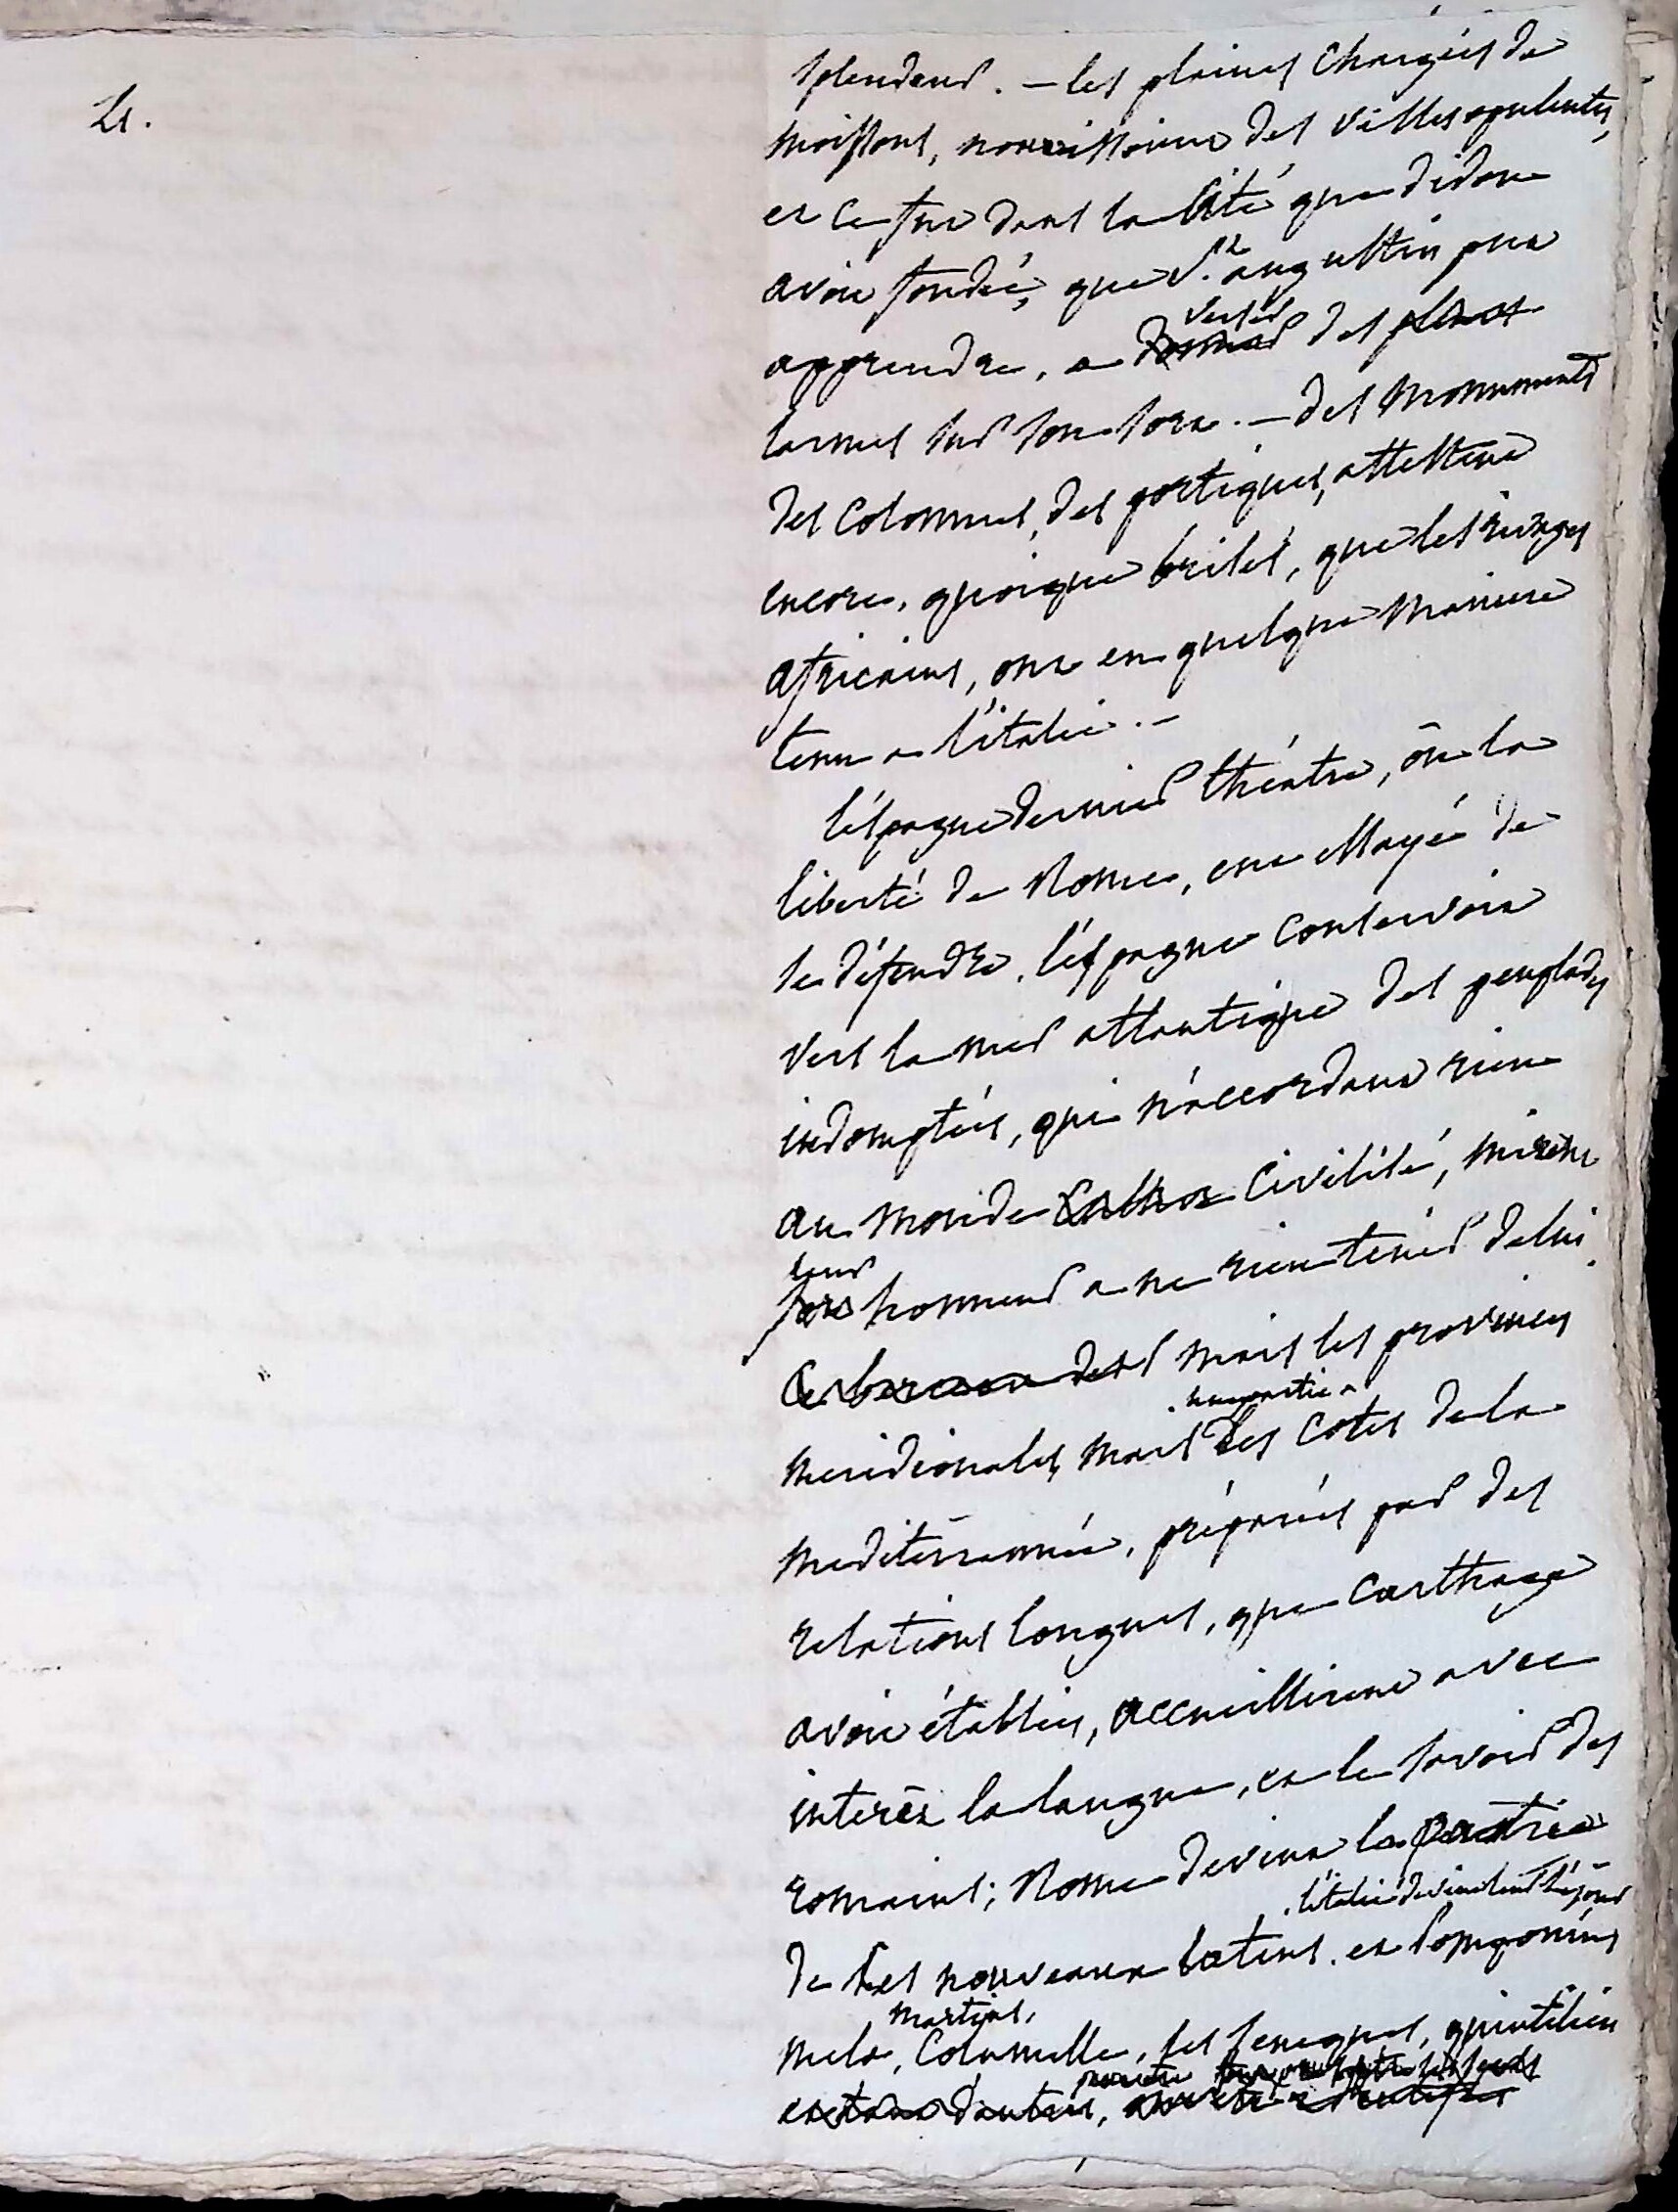 21.
splendeur. – les plaines chargées de
moissons, nourrissoient des villes opulentes,
et ce fut dans la Cité que didon
avoit fondée, que St. augustin put
apprendre, a verser des
larmes sur son sort. – des monuments
des colonnes, des portiques, attestent
encore, quoique brisés, que les rivages
africains, ont en quelque maniere
tenu a l'italie. –
l'éspagne dernier théatre, ou la
liberté de Rome, eut essayé de
se défendre, l'éspagne conservoit
vers la mer atlantique des peuplades
indomptées, qui n'accordant rien
au monde civilisé, mirent
leur honneur a ne rien tenir de lui.
mais les provinces
meridionales, mais une partie des cotes de la
mediterrannée, préparées par des
relations longues, que Carthage
avoit établies, accueillirent avec
interêt la langue, et le savoir des
romains; Rome devint la patrie
de ses nouveaux latins. l'italie devint leur séjour
et Pomponius
mela, martial, Columelle, les seneques, quintilien
et tant d'autres,